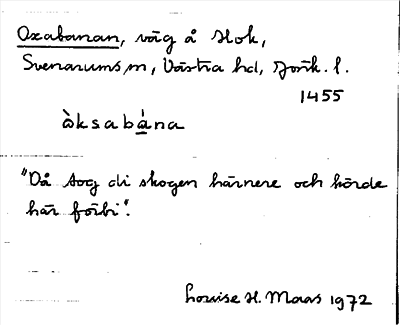 Oxabanan, väg å Hok,
Svenarums sn, Västra hd, Jönk. l.
1455
òksabána
"Då tog di skogen härnere och körde
här förbi".
Louise H. Maas 1972